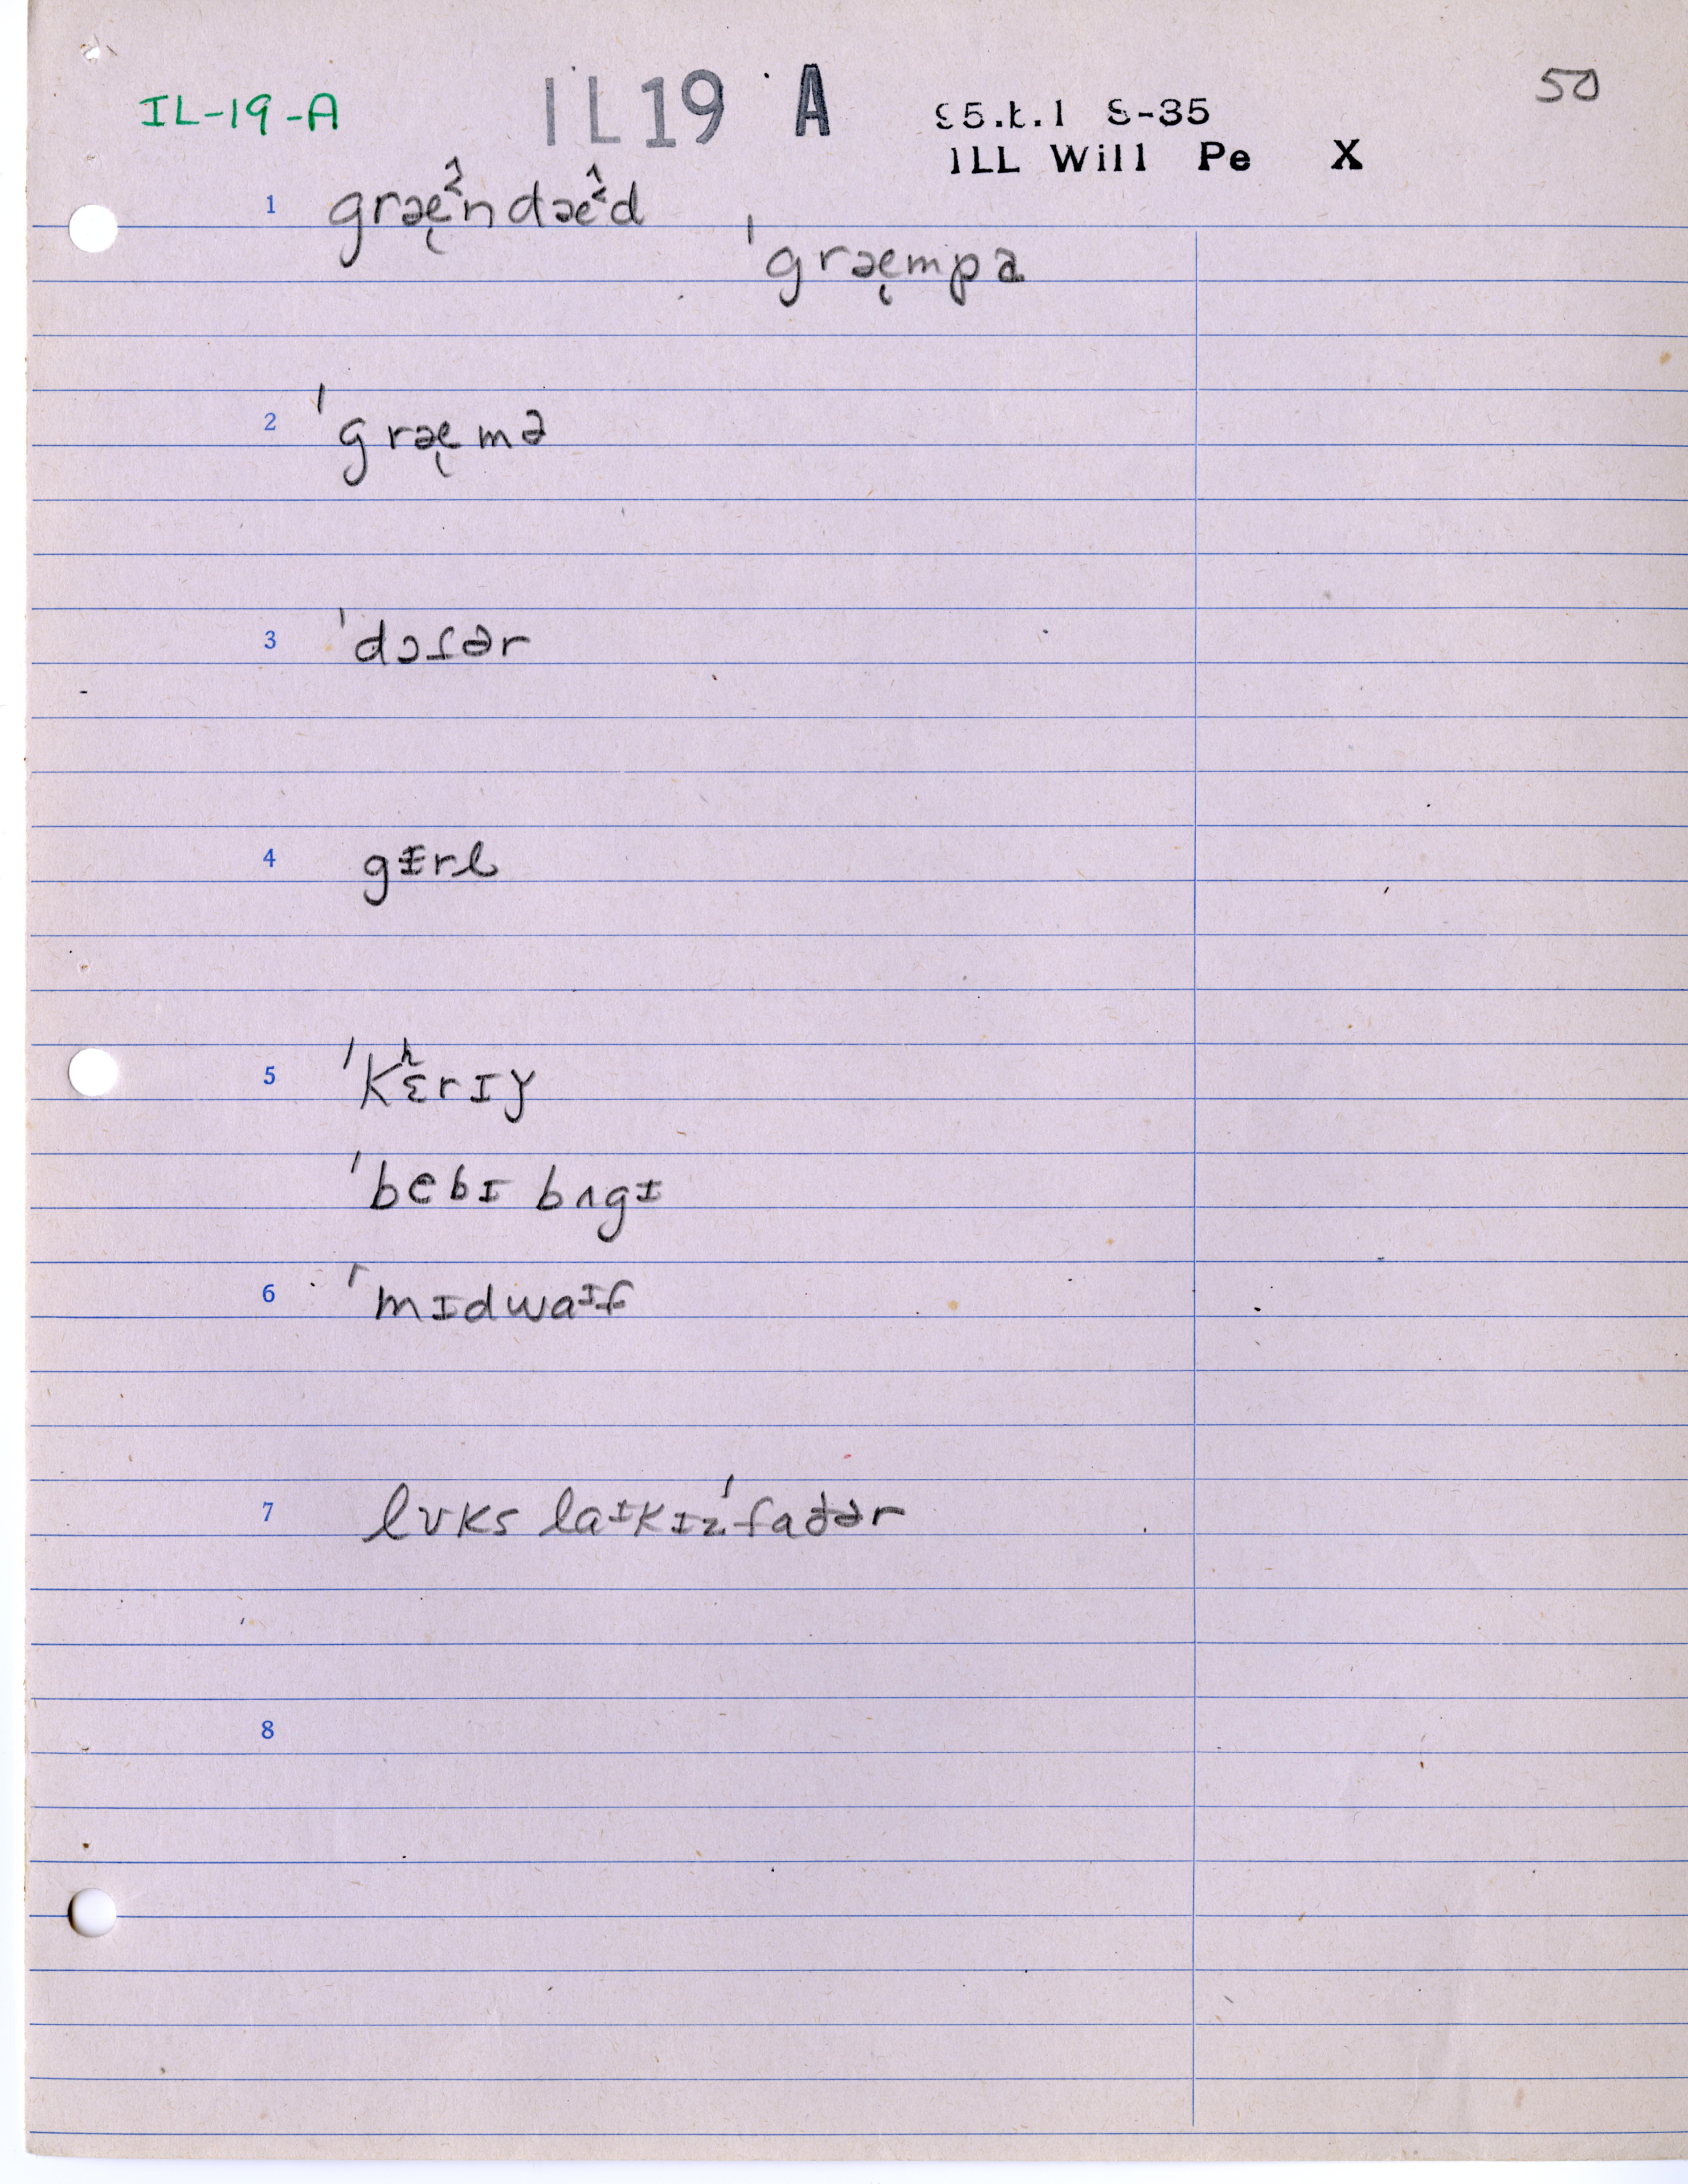 50
IL-19-A IL19 A ε5.t.1 8-35
ILL Will Pe X
1 græ̨ᵋ̂ndæᵋ̂d
ˈgræ̨mpə
2 ˈgræ̨mə
3 ˈdɔɾər
4 gɨrl
5 ˈkʰɛrɪy
ˈbebɪ bʌgɪ
6 ˈmɪdwaᶦf
7 lʊks laᶦkɪzˈfaðər
8